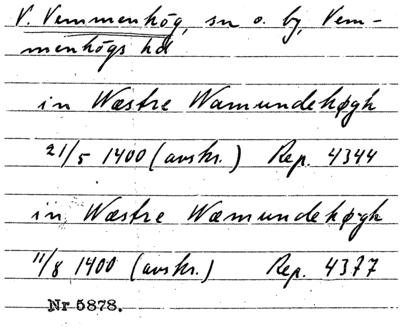 V. Vemmenhög, sn o. by, Vem-
menhögs hd
in Wæstre Wamundehøgh
21/5 1400 (avskr.) Rep. 4344
in Wæstre Wæmundehøgh
11/8 1400 (avskr.) Rep. 4377
Nr 5878.